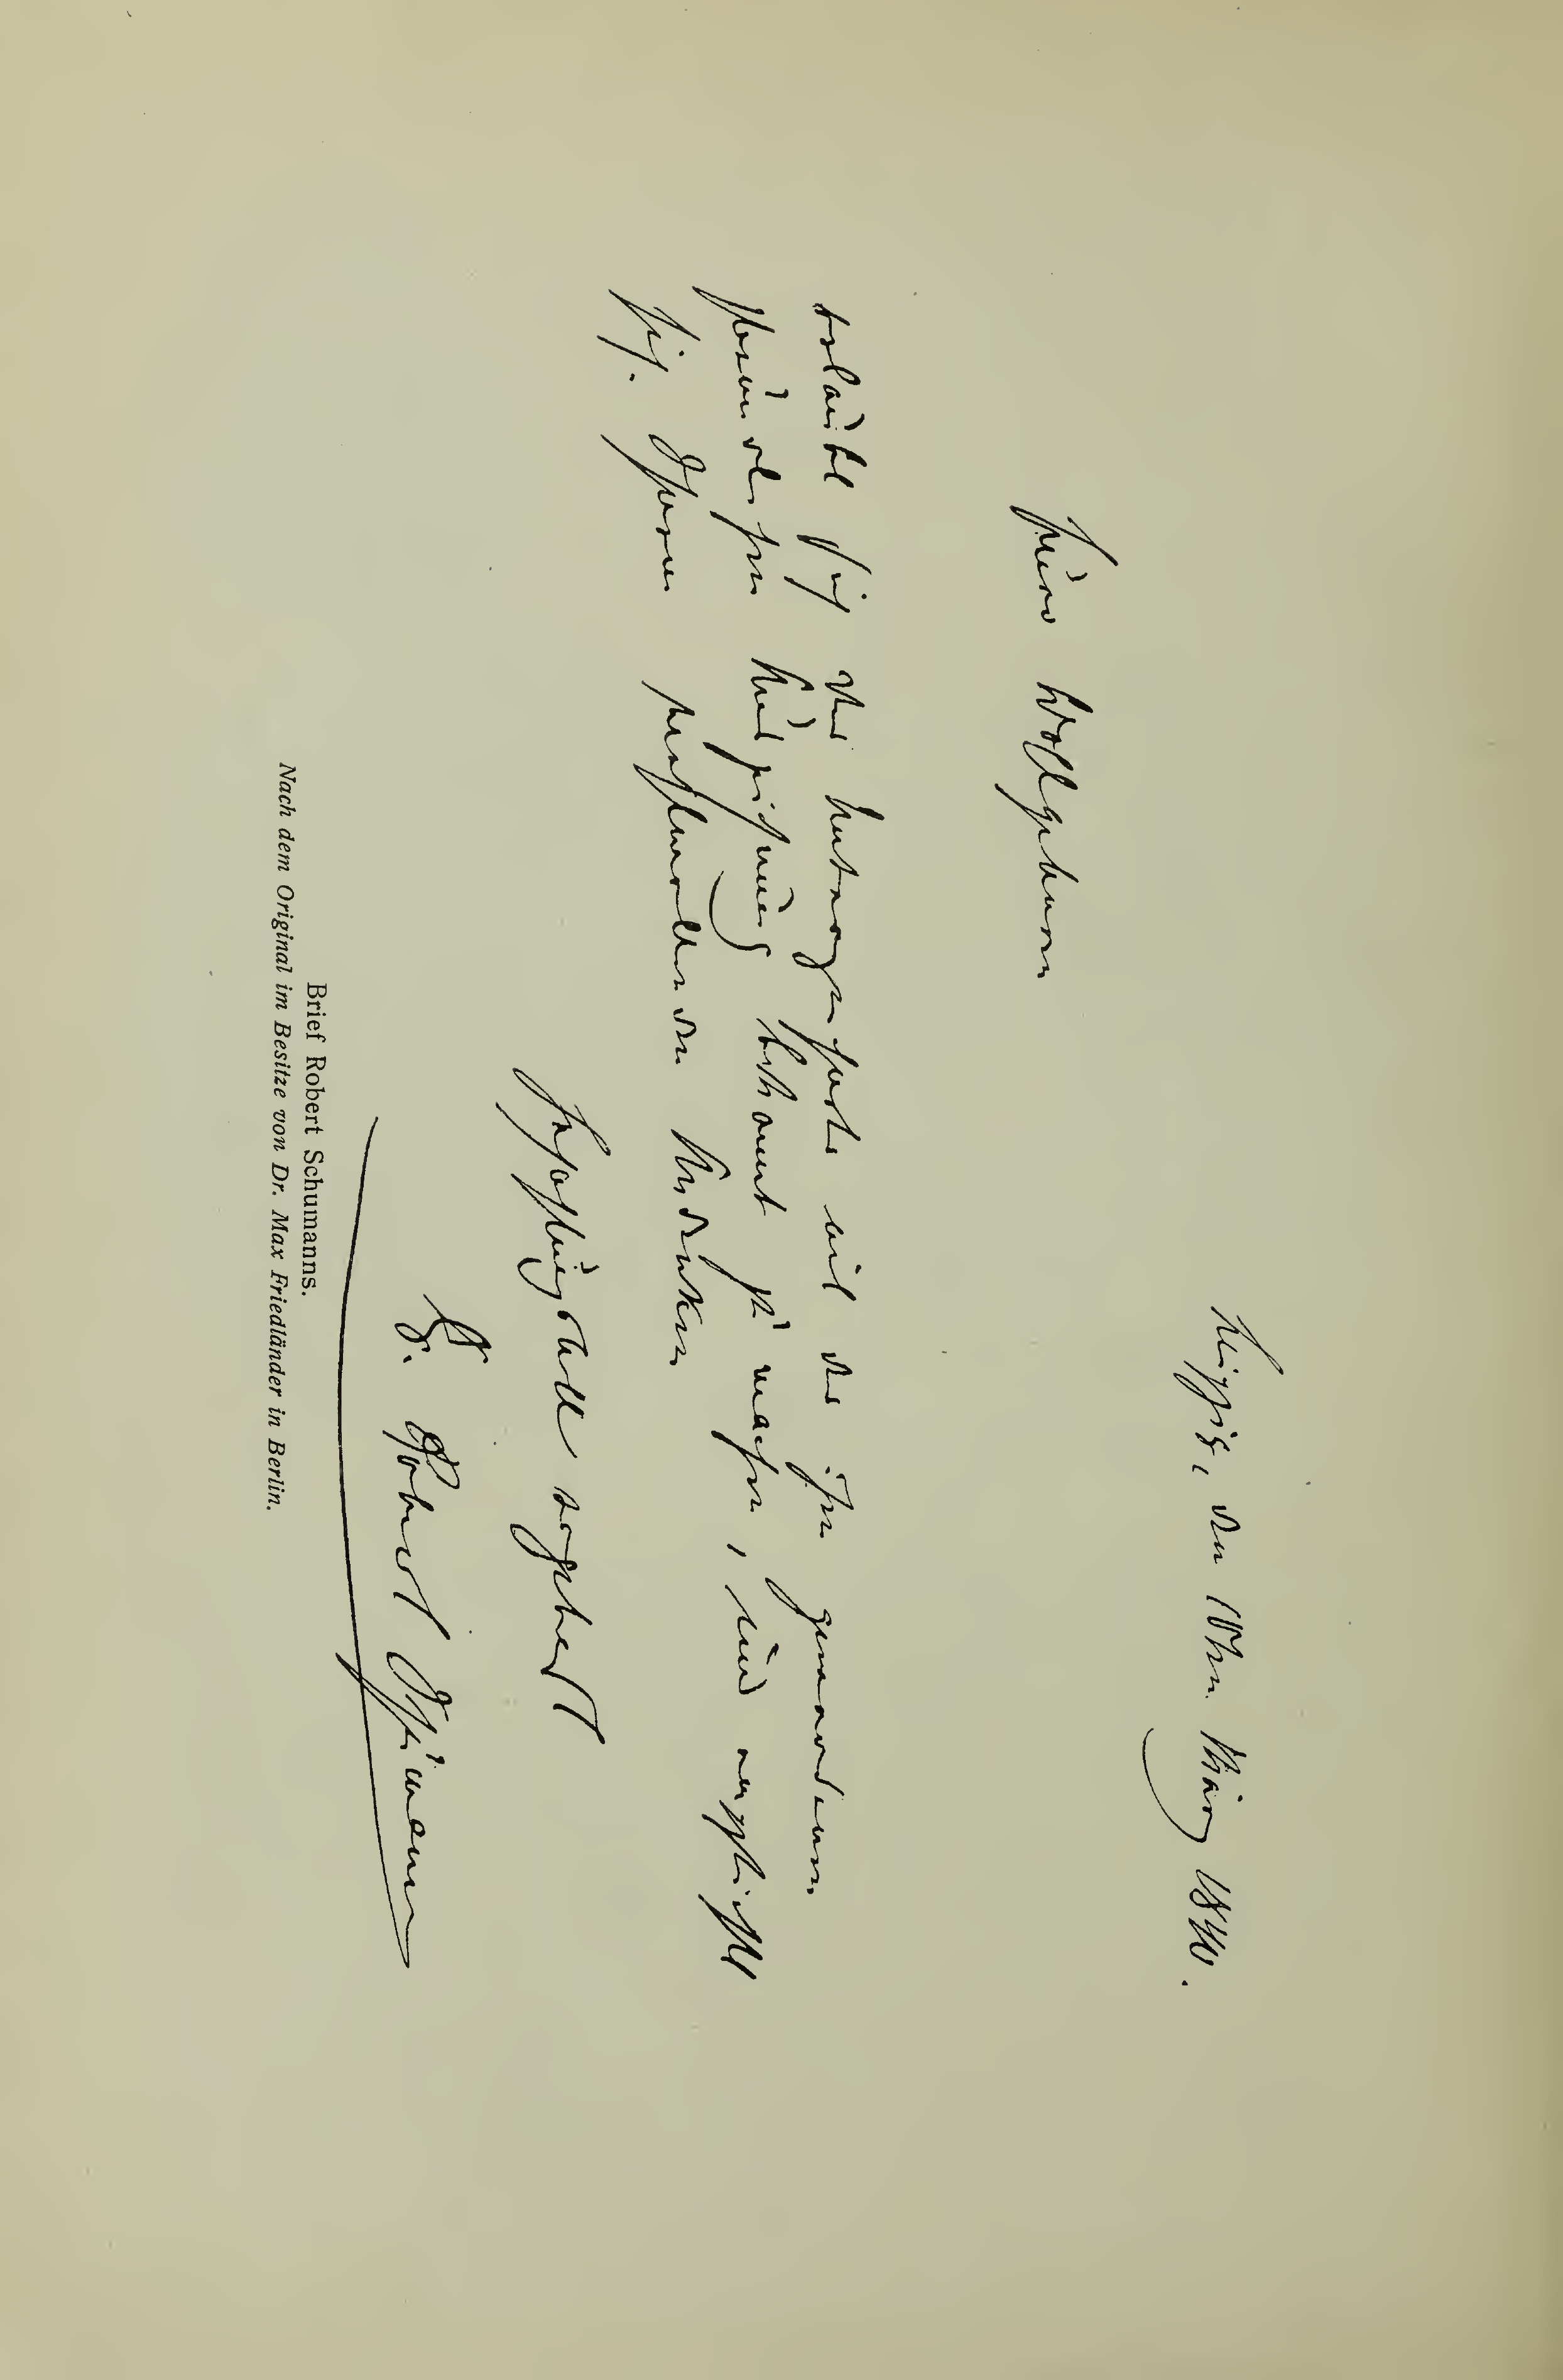 Leipzig, den 10ten März 1840.
Euer Wohlgeboren
erlaubt sich der Unterzeichnete mit der ihm gewordenen
ehrenvollen Auszeichnung bekannt zu machen, und empfiehlt
sich Ihrem wohlwollenden Andenken
Hochachtungsvoll ergebenst
Dr. Robert Schumann
Brief Robert Schumanns.
Nach dem Original im Besitze von Dr. Max Friedländer in Berlin.